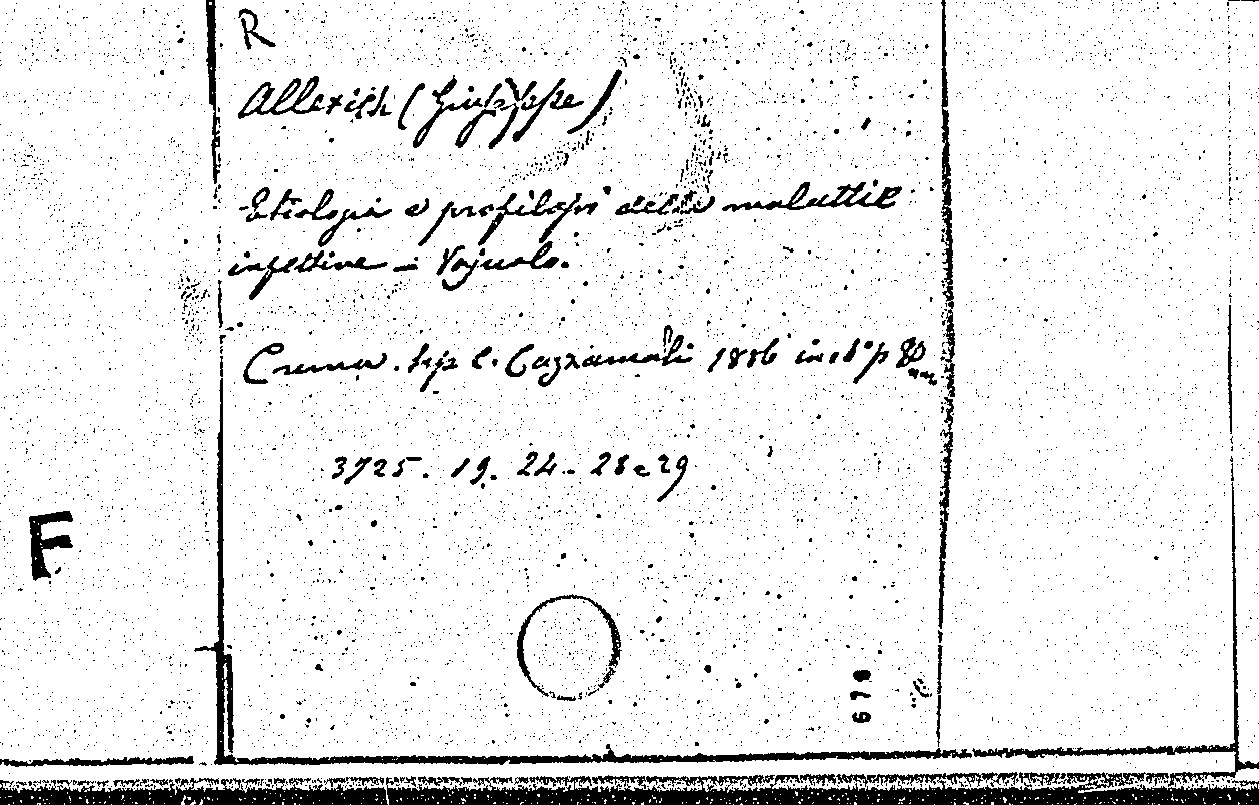 R
Allerich (Giuseppe)
Etiologia e profilassi delle malattie
infettive - Vajuolo.
Crema. tip C. Cazzamalli 1886 in 16° p 80
3725. 19. 24 - 28 e 29
F
678